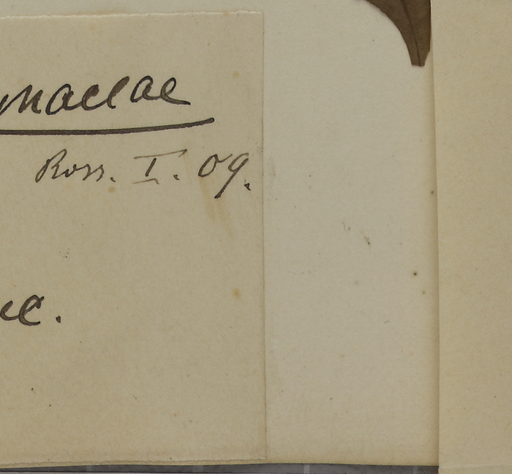 naceae
Ross. I. 09.
c.